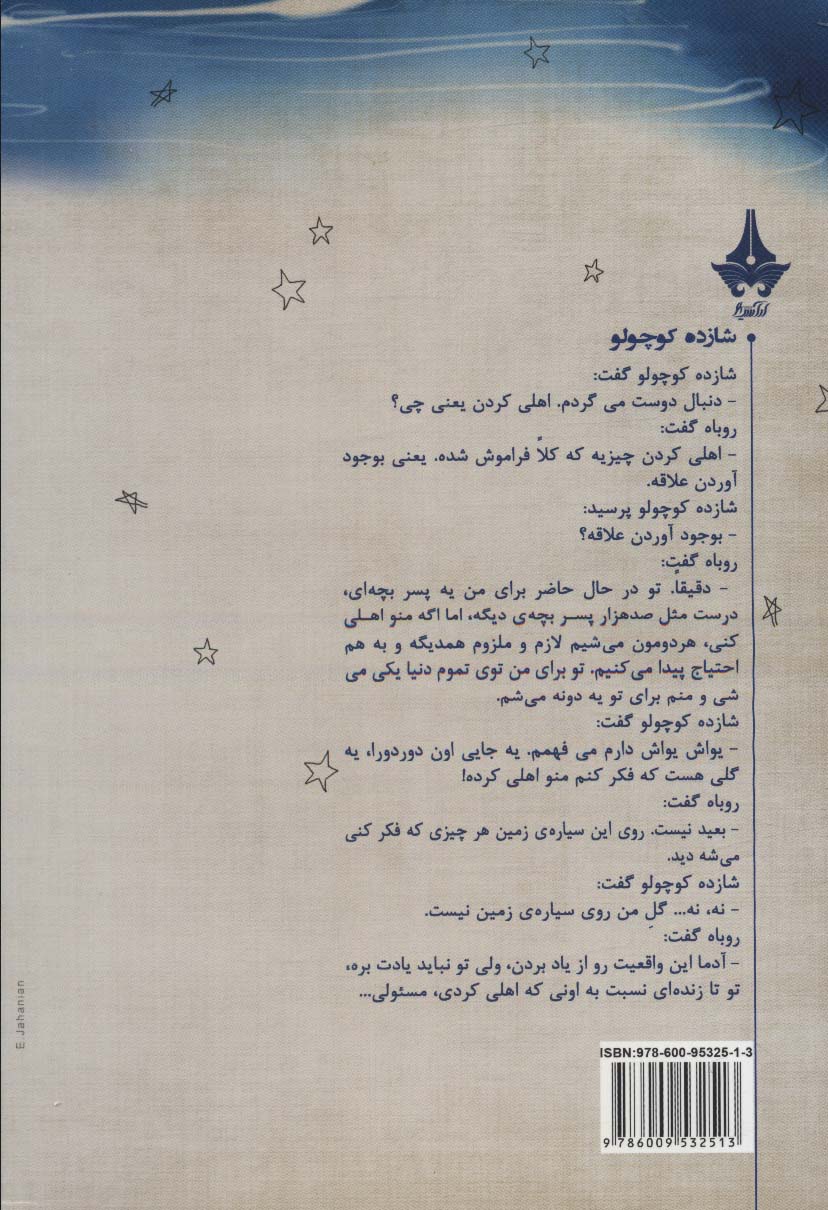 شازده کوچولو
شازده کوچولو گفت:
- دنبال دوست می گردم. اهلی کردن یعنی چی؟
روباه گفت:
- اهلی کردن چیزیه که کلاً فراموش شده. یعنی بوجود
آوردن علاقه.
شازده کوچولو پرسید:
- بوجود آوردن علاقه؟
روباه گفت:
- دقیقاً. تو در حال حاضر برای من یه پسر بچه‌ای،
درست مثل صدهزار پسر بچه‌ی دیگه، اما اگه منو اهلی
کنی، هردومون می‌شیم لازم و ملزوم همدیگه و به هم
احتیاج پیدا می‌کنیم. تو برای من توی تموم دنیا یکی می
شی و منم برای تو یه دونه می‌شم.
شازده کوچولو گفت:
- یواش یواش دارم می فهمم. یه جایی اون دوردورا، یه
گلی هست که فکر کنم منو اهلی کرده!
روباه گفت:
- بعید نیست. روی این سیاره‌ی زمین هر چیزی که فکر کنی
می‌شه دید.
شازده کوچولو گفت:
- نه، نه... گلِ من روی سیاره‌ی زمین نیست.
روباه گفت:
- آدما این واقعیت رو از یاد بردن، ولی تو نباید یادت بره،
تو تا زنده‌ای نسبت به اونی که اهلی کردی، مسئولی...
E.Jahanian
ISBN:978-600-95325-1-3
9 786009 532513